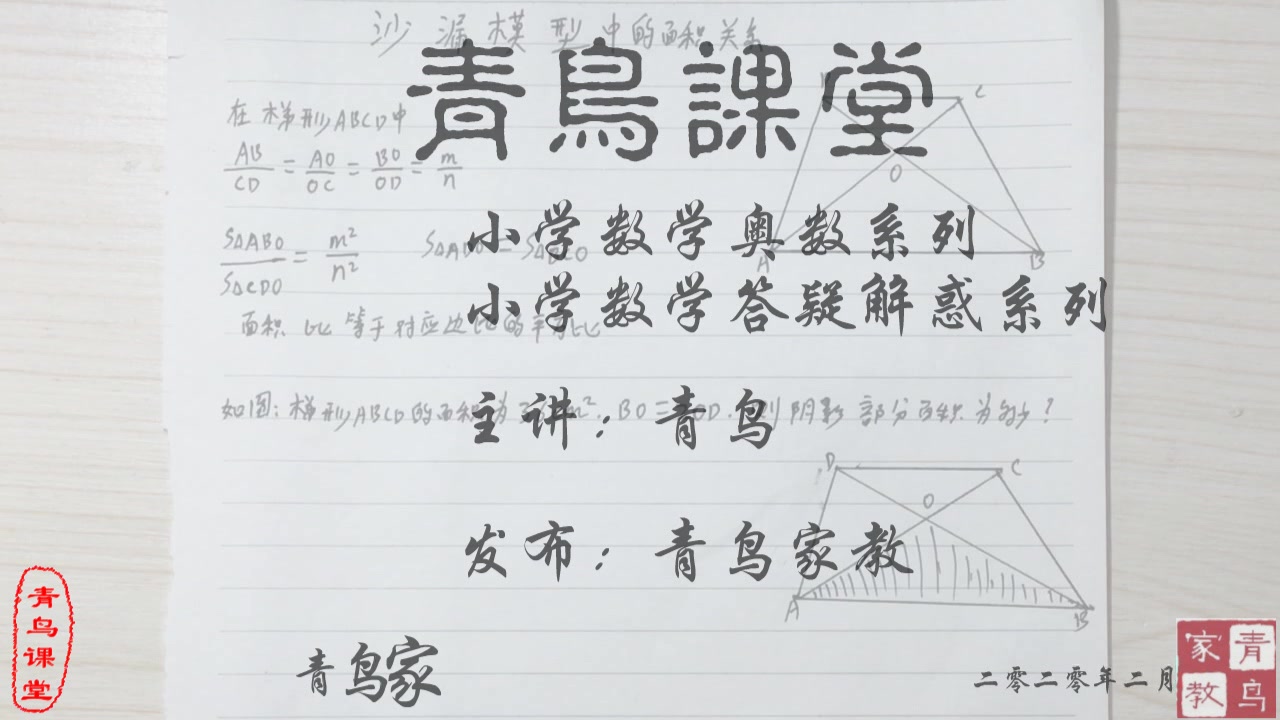 沙漏模型中的面积关系
青鳥課堂
在梯形ABCD中
AB/CD = AO/OC = BO/OD = m/n
小学数学奥数系列
S△ABO/S△CDO = m²/n²
小学数学答疑解惑系列
面积比等于对应边比的平方比
主讲：青鸟
如图：梯形ABCD的面积为
BO
阴影部分面积为多少？
发布：青鸟家教
D C
O
A B
D C
O
A B
青鸟家
二零二零年二月
青鸟课堂
青鸟家教